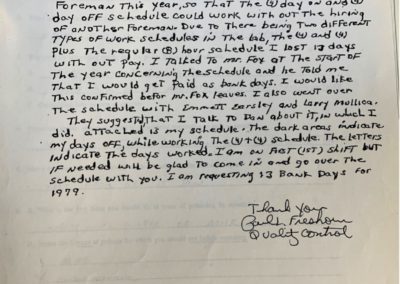 Foreman This year, so That The (4) day on and (4)
day OFF schedule could work with out The hiring
OF another Foreman. Due To There being Two different
Types of work schedules in The lab, The (4) and (4)
Plus The regular (8) hour schedule I lost 13 days
with out Pay. I Talked To Mr. Fox at The START OF
The year concerning The schedule and he Told me
That I would get Paid as bank days. I would like
This confirmed befor Mr. Fox leaves. I also went over
The schedule with Emmett Earsley and Larry Mullica.
They suggest That I Talk To Dan about it, in which I
did. attached is my schedule. The dark areas indicate
my days off, while working The (4)+(4) schedule. The letters
indicate The days worked. I am on First (1st) shift but
if needed will be glad To come in and go over The
schedule with you. I am requesting 13 Bank Days for
1979.
Thank you
Freshour
Quality Control